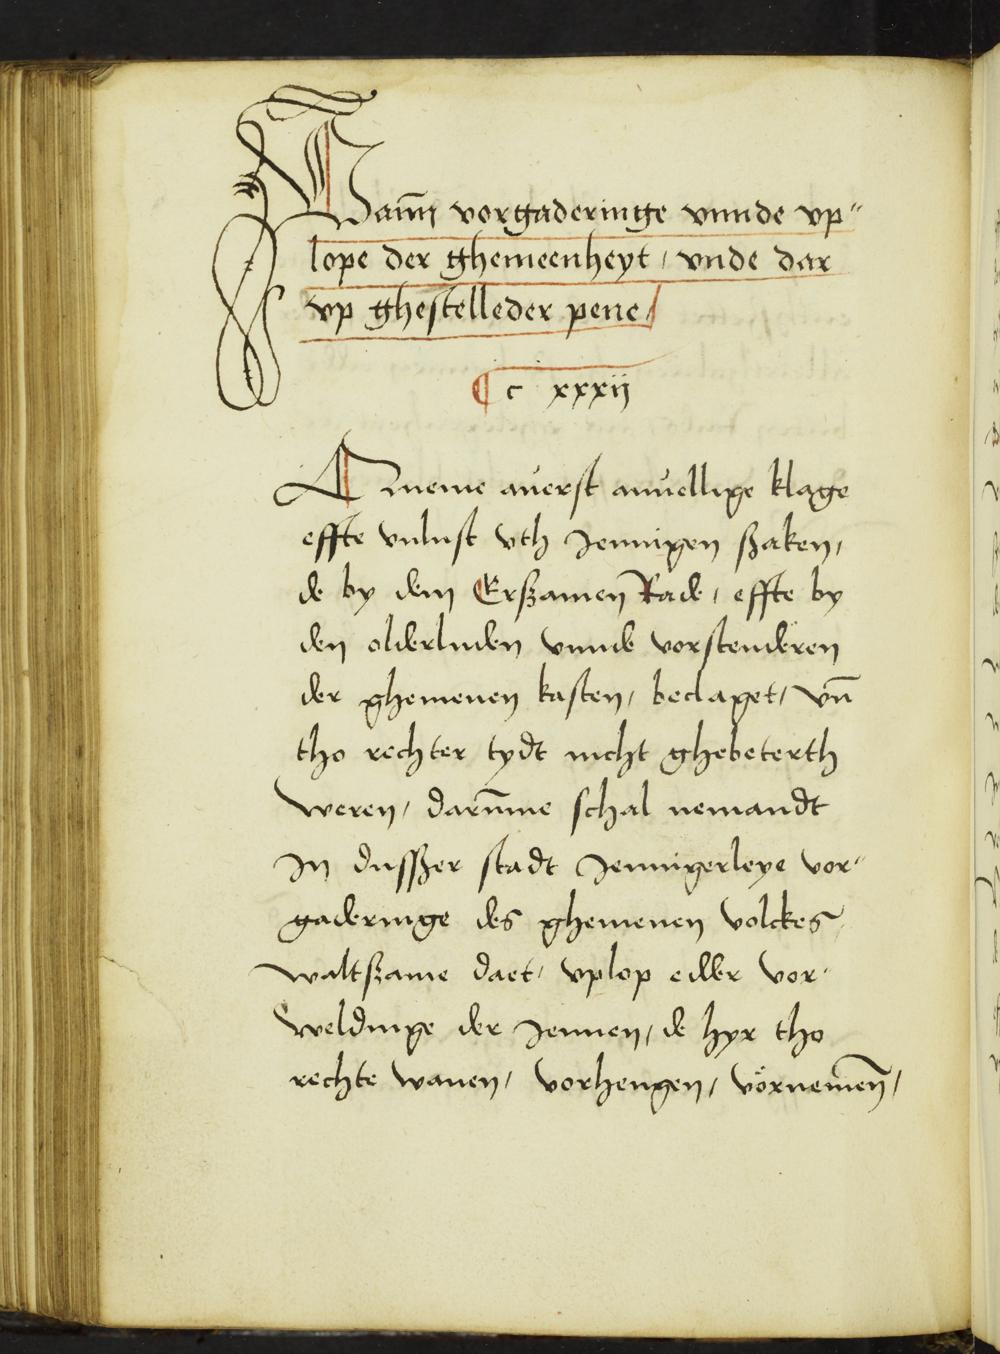 Vann vorgaderinge vnnde vp"
lope der ghemeenheyt, vnde dar
vp ghestelleder pene,
c xxxij
Al meine auerst anuellige klage
effte vnlust vth Jennigen szaken,
de by dem Erszamen Rade, effte by
den olderluden vnnde vorstenderen
der ghemenen kasten, beclaget, vn̄
tho rechter tydt nicht ghebeterth
weren, darūme schal nemandt
In dussßer stadt Jennigerleye vor"
gaderinge des ghemenen volckes,
waltszame daet, vplop edder vor"
weldinge der Jennen, de hyr tho
rechte wanen, vorhengen, vörnemen̄,